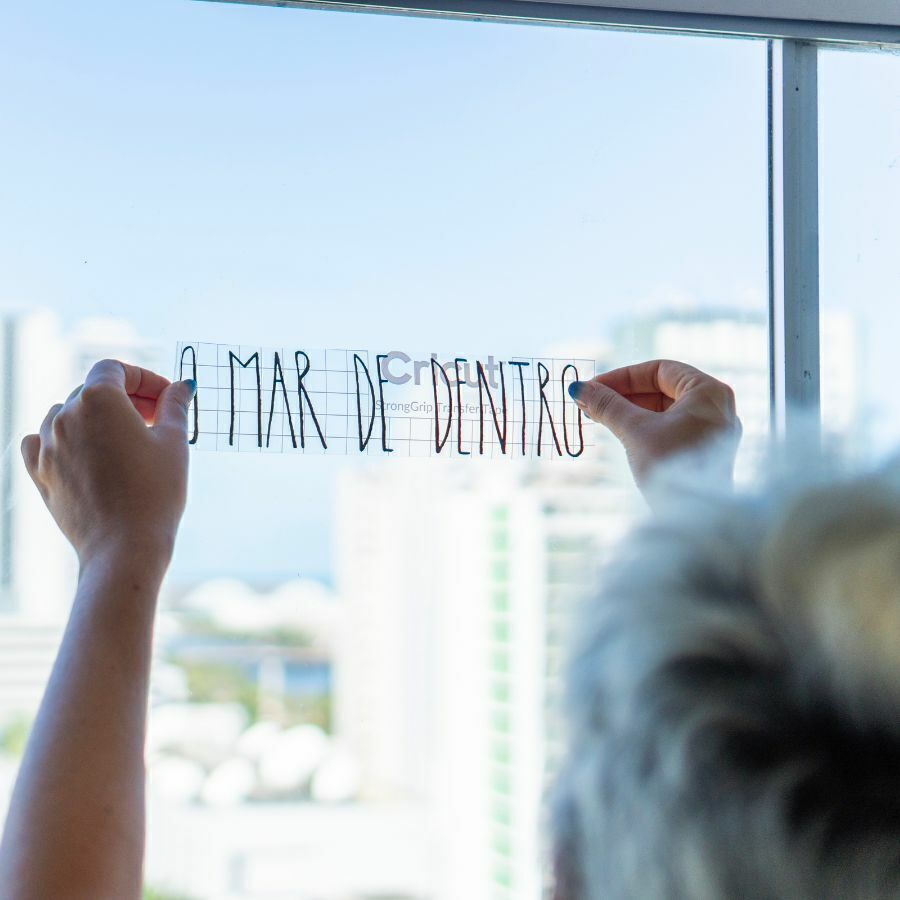 O MAR DE DENTRO
Cricut
StrongGrip Transfer Tape